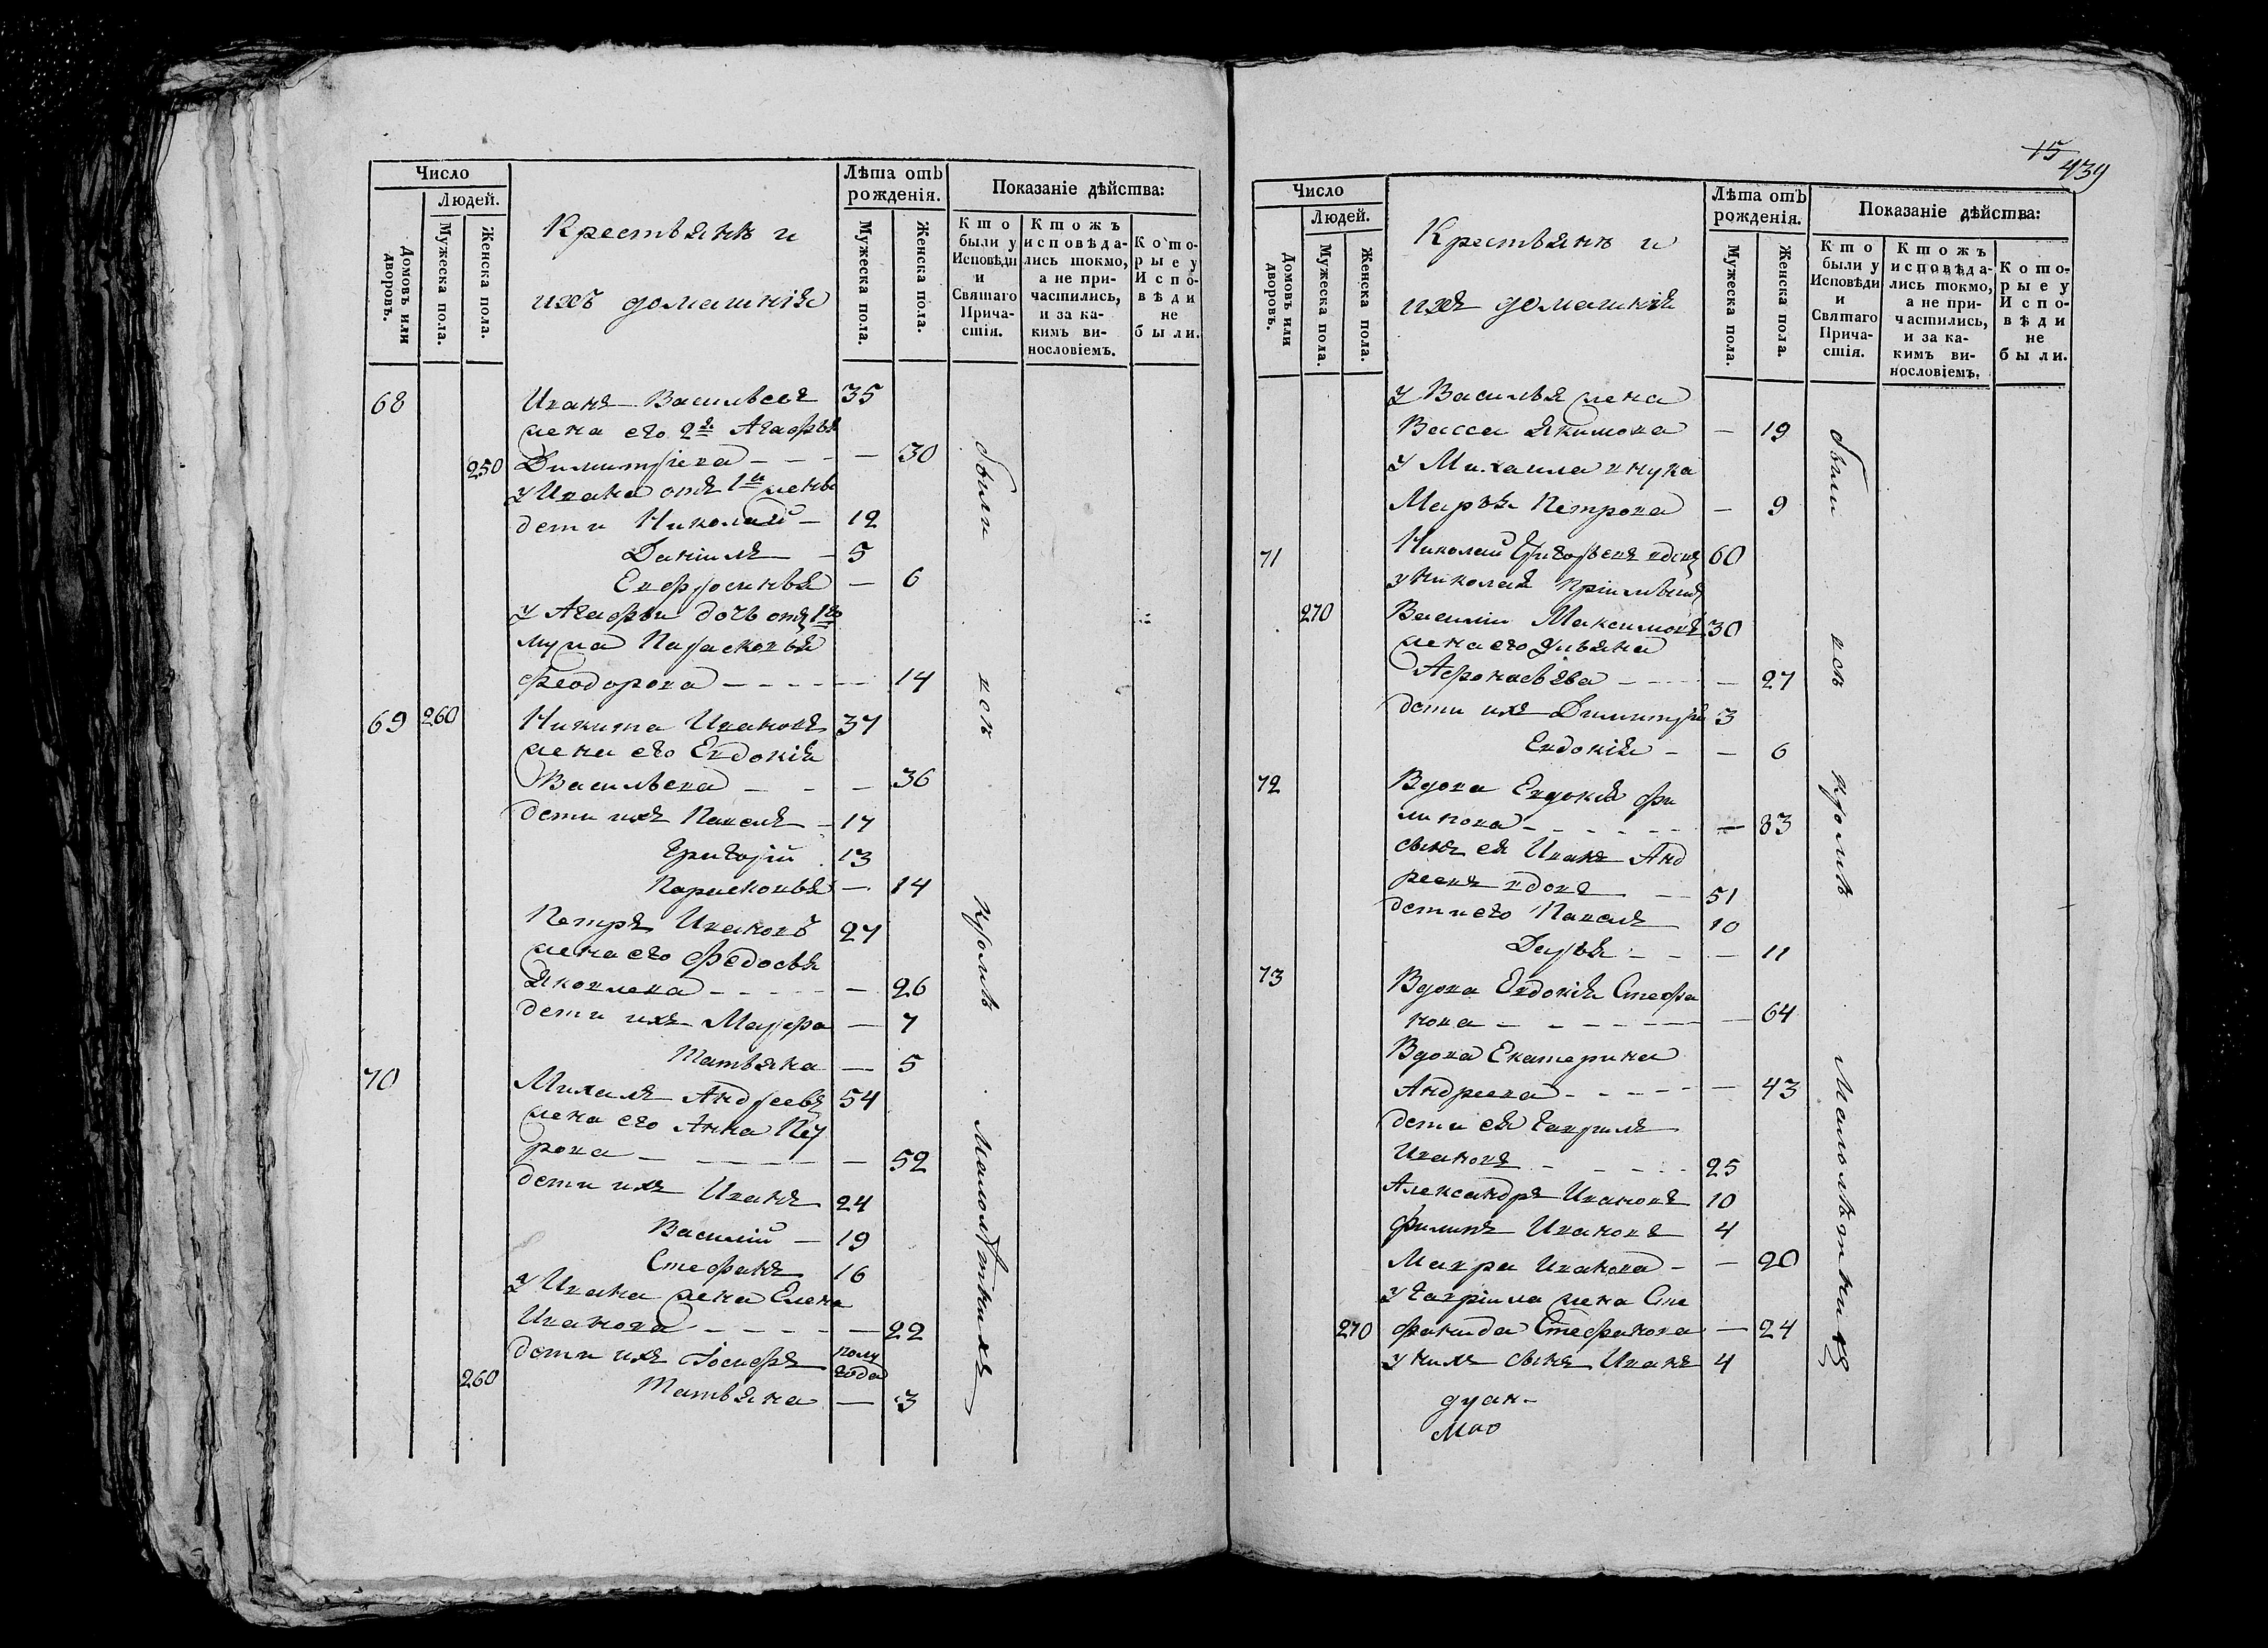 15
439
Число
Людей.
Домовъ или дворовъ.
Мужеска пола.
Женска пола.
Крестьянѣ и
ихъ домашнія
Лѣта отъ
рожденія.
Мужеска пола.
Женска пола.
Показаніе дѣйства:
Кто
были у
Исповѣди
и
Святаго
Прича-
стія.
Ктожъ
исповѣда-
лись токмо,
а не при-
частились,
и за ка-
кимъ ви-
нословіемъ.
Кото-
рые у
Испо-
вѣди
не
были.
68 Иванъ Васильевъ 35
жена его 2я Агафья
250 Димитріева - - - — 30
у Ивана отъ 1й жены
дети Николай — 12
Даніилъ — 5
Евфросинья — 6
у Агафьи дочь отъ 1го
мужа Парасковья
Феодорова - - - - — 14
69 260 Никита Ивановъ 37
жена его Евдокія
Васильева - - — 36
дети ихъ Павелъ - 17
Григорій 13
Парасковья — 14
Петръ Ивановъ 27
жена его Федосья
Яковлева - - - - — 26
дети ихъ Марфа — 7
Татьяна — 5
70 Михаилъ Андреевъ 54
жена его Анна Пет
рова - - - - — 52
дети ихъ Иванъ 24
Василій — 19
Стефанъ 16
у Ивана жена Елена
Иванова - - - - — 22
дети ихъ Іосифъ полу
года
260 Татьяна — 3
были
всѣ
кромѣ
малолѣтнихъ
Число
Людей.
Домовъ или дворовъ.
Мужеска пола.
Женска пола.
Крестьянѣ и
ихъ домашнія
Лѣта отъ
рожденія.
Мужеска пола.
Женска пола.
Показаніе дѣйства:
Кто
были у
Исповѣди
и
Святаго
Прича-
стія.
Ктожъ
исповѣда-
лись токмо,
а не при-
частились,
и за ка-
кимъ ви-
нословіемъ.
Кото-
рые у
Испо-
вѣди
не
были.
у Василья жена
Васса Якимова — 19
у Михаила внука
Марья Петрова — 9
71 Николай Григорьевъ вдовъ 60
у Николая
270 Василій Максимовъ 30
жена его Ульяна
Афонасьева - - - — 27
дети ихъ Димитрій 3
Евдокія - — 6
72 Вдова Евдокія Фи
липова - - - - - — 83
сынъ ея Иванъ Анд
реевъ вдовъ — 51
дети его Павелъ 10
Дарья - - — 11
73 Вдова Евдокія Стефа
нова - - - - - — 64
Вдова Екатерина
Андреева - - - - — 43
дети ея Гаврилъ
Ивановъ - - - - 25
Александръ Ивановъ 10
Филипъ Ивановъ 4
Мавра Иванова - — 20
у Гавріила жена Сте
270 фанида Стефанова — 24
у нихъ сынъ Иванъ 4
были
всѣ
кромѣ
малолѣтнихъ